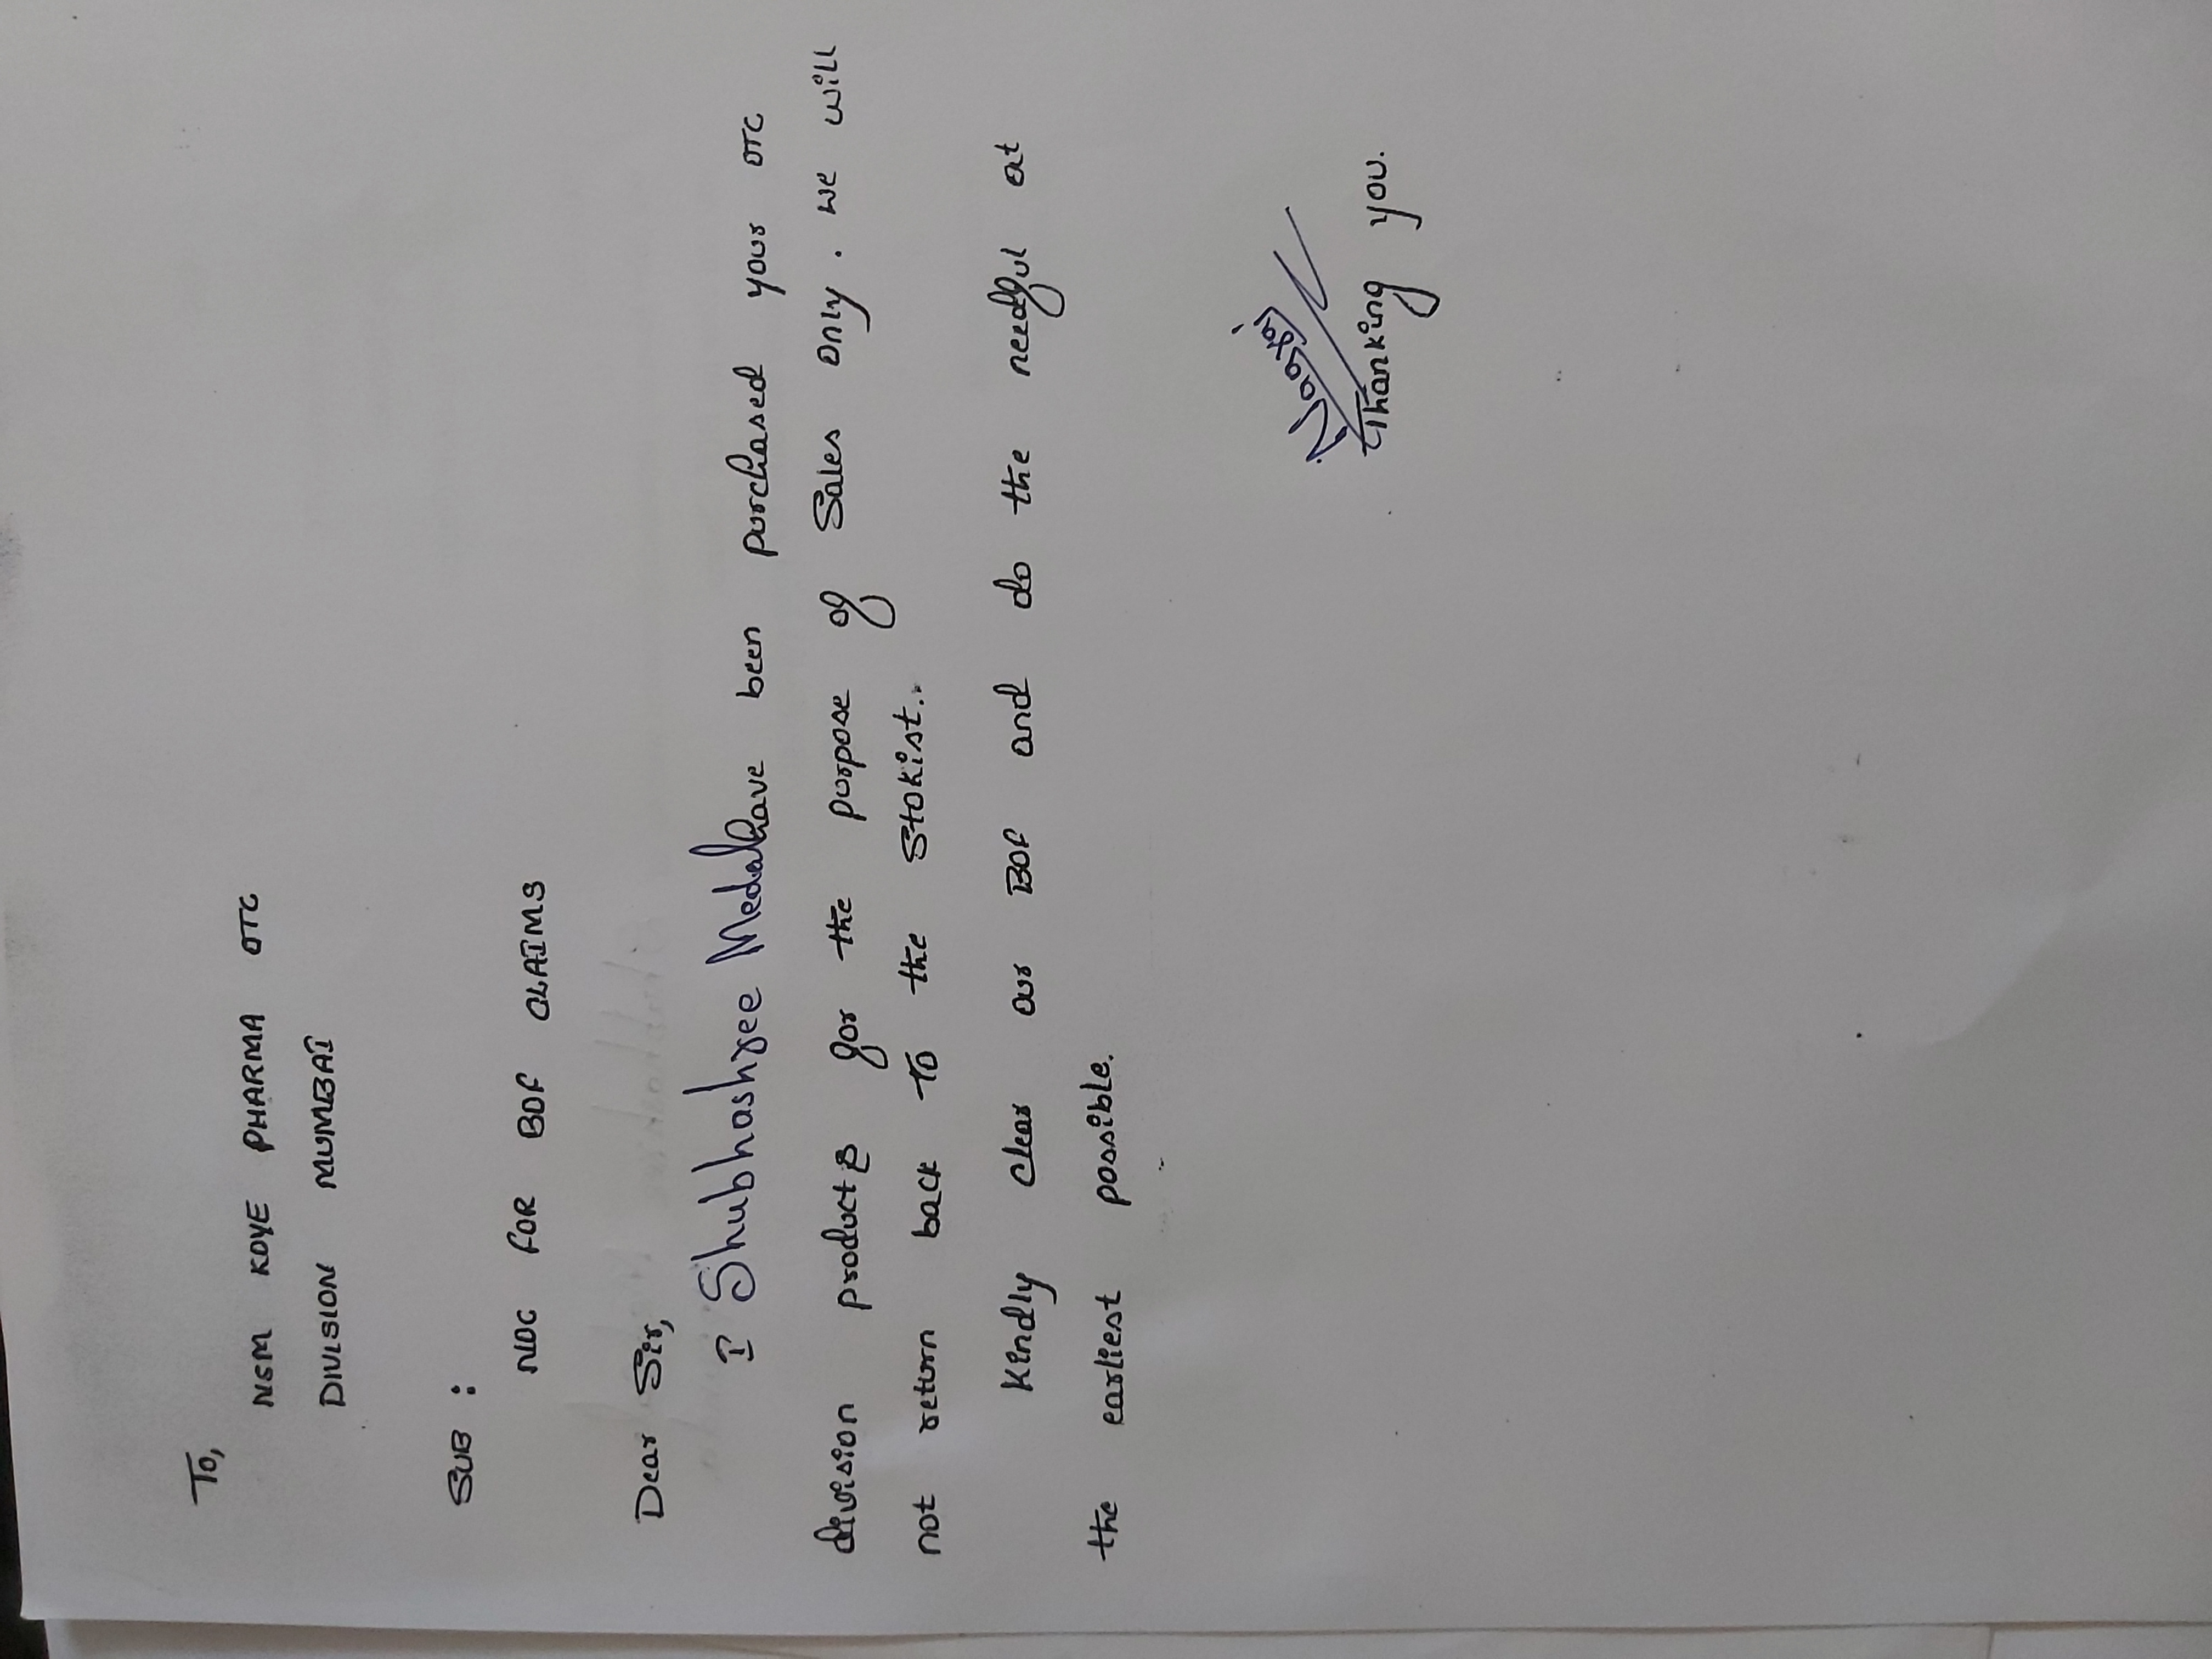 To,
NSM KOYE PHARMA OTC
DIVISION MUMBAI
SUB :
NOC FOR BDF CLAIMS
Dear Sir,
I Shubhashree Medahave been purchased your OTC
division products for the purpose of Sales only. we will
not return back To the Stokist..
Kindly clear our BDF and do the needful at
the earliest possible.
Thanking you.